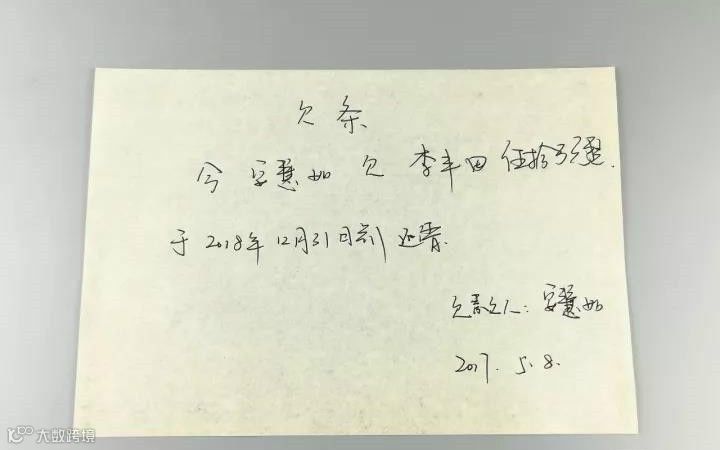 欠条
今 安慧如 欠 李丰田 伍拾万整.
于2018年12月31日前 还清.
欠款人: 安慧如
2017. 5. 8.
大数跨境